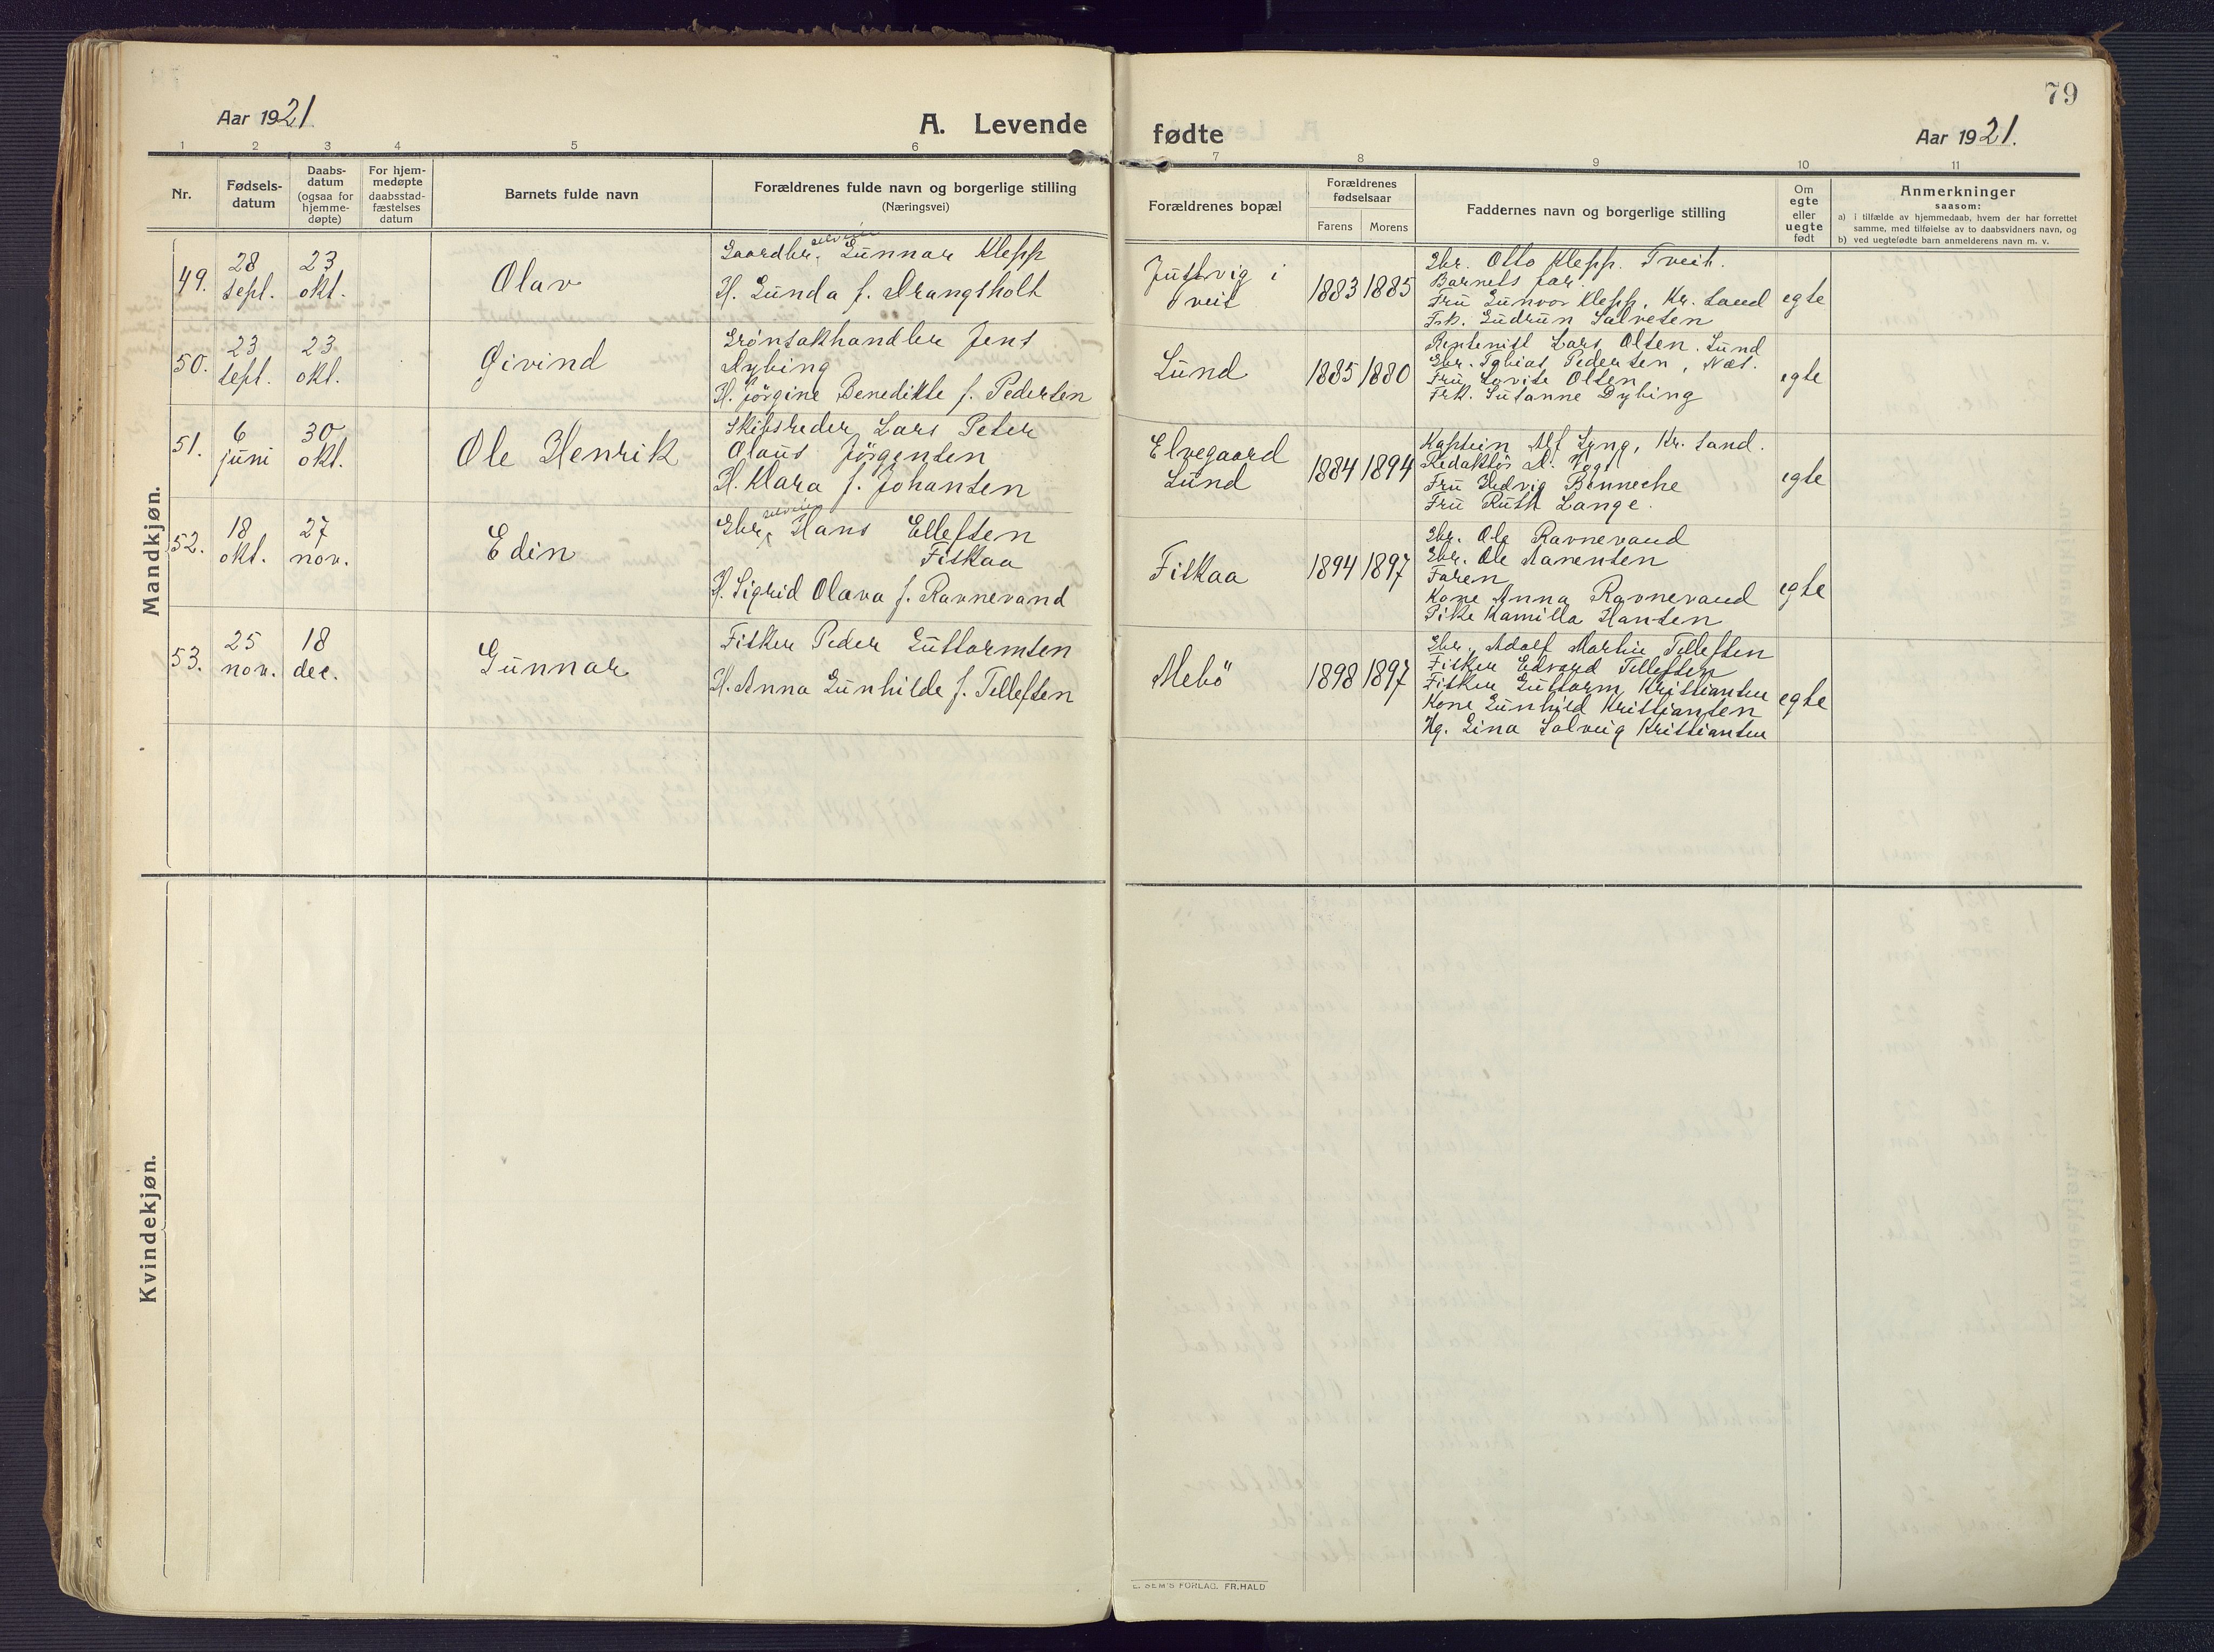 79
Aar 1921
A. Levende
fødte
Aar 1921.
1 2 3 4 5 6 7 8 9 10 11
Nr.
Fødsels-
datum
Daabs-
datum
(ogsaa for
hjemme-
døpte)
For hjem-
medøpte
daabsstad-
fæstelses
datum
Barnets fulde navn
Forældrenes fulde navn og borgerlige stilling
(Næringsvei)
Forældrenes bopæl
Forældrenes
fødselsaar
Farens Morens
Faddernes navn og borgerlige stilling
Om
egte
eller
uegte
født
Anmerkninger
saasom:
a) i tilfælde av hjemmedaab, hvem der har forrettet
samme, med tilføielse av to daabsvidners navn, og
b) ved uegtefødte barn anmelderens navn m. v.
Mandkjøn.
49.
28
sept.
23
okt.
Olav
selveier
Gaardbr. Gunnar Klepp
H. Gunda f. Drangsholt
Justvig i
Tveit
1883 1885
Gbr. Otto Klepp. Tveit.
Barnets far.
Fru Gunvor Klepp, Kr. Sand
Frk. Gudrun Salvesen
egte
50.
23
sept.
23
okt.
Øivind
Grønsakhandler Jens
Dybing
H. Jørgine Benedikte f. Pedersen
Lund
1885 1880
Rentenist Lars Olsen. Lund
Gbr. Tobias Pedersen, Næs.
Fru Lovise Olsen
Frk. Susanne Dybing
egte
51.
6
juni
30
okt.
Ole Henrik
Skibsreder Lars Peter
Olaus Jörgensen
H. Klara f. Johansen
Elvegaard
Lund
1884 1894
Kaptein Alf Lyng, Kr. Sand.
Redaktör D. Vogt
Fru Hedvig Benneche
Fru Ruth Lange.
egte
52.
18
okt.
27
nov.
Edin
selveier
Gbr. Hans Ellefsen
Fiskaa
H. Sigrid Olava f. Ravnevand
Fiskaa
1894 1897
Gbr. Ole Ravnevand
Gbr. Ole Aanensen
Faren
Kone Anna Ravnevand
Pike Kamilla Hansen
egte
53.
25
nov.
18
dec.
Gunnar
Fisker Peder Guttormsen
H. Anna Gunhilde f. Tellefsen
Mebö
1898 1897
Gbr. Adolf Martin Tellefsen
Fisker Edvard Tellefsen
Fisker Guttorm Kristiansen
Kone Gunhild Kristiansen
Ug. Gina Solveig Kristiansen
egte
Kvindekjøn.
E. SEM'S FORLAG. FR.HALD